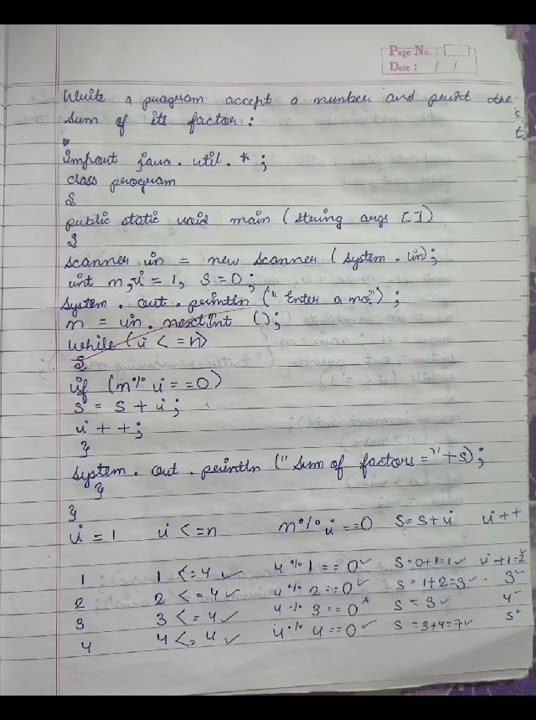 Page No. :
Date : / /
Write a program accept a number and print the
sum of its factor :
import java . util . * ;
class program
{
public static void main ( String args [ ] )
{
Scanner in = new Scanner ( System . in ) ;
int n, i = 1, s = 0 ;
System . out . println (" Enter a no") ;
n = in . nextInt () ;
while ( i < = n )
{
if ( n % i = = 0 )
s = s + i ;
i + + ;
}
System . out . println (" Sum of factors = " + s) ;
}
}
i = 1 i < = n n % i = = 0 S = S + i i + +
1 1 < = 4 ✓ 4 % 1 = = 0 ✓ S = 0 + 1 = 1 ✓ i + 1 = 2
2 2 < = 4 ✓ 4 % 2 = = 0 ✓ S = 1 + 2 = 3 ✓ 3 ✓
3 3 < = 4 ✓ 4 % 3 = = 0 x S = 3 ✓ 4 ✓
4 4 < = 4 ✓ 4 % 4 = = 0 ✓ S = 3 + 4 = 7 ✓ 5 ✓